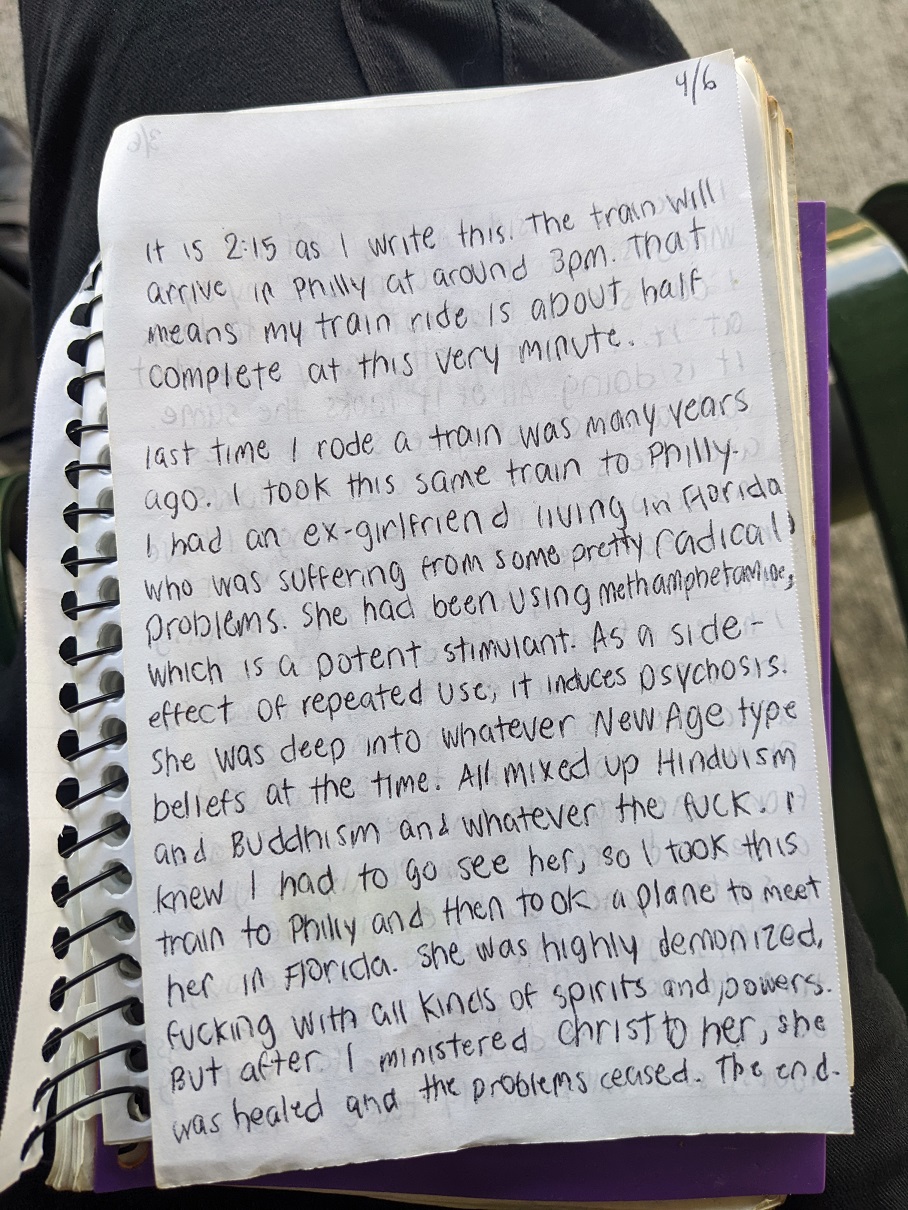 4/6
It is 2:15 as I write this. The train will
arrive in Philly at around 3pm. That
means my train ride is about half
complete at this very minute.
last time I rode a train was many years
ago. I took this same train to Philly.
I had an ex-girlfriend living in Florida
who was suffering from some pretty radical
problems. She had been using methamphetamine,
which is a potent stimulant. As a side-
effect of repeated use, it induces psychosis.
She was deep into whatever New Age type
beliefs at the time. All mixed up Hinduism
and Buddhism and whatever the fuck. I
knew I had to go see her, so I took this
train to Philly and then took a plane to meet
her in Florida. She was highly demonized,
fucking with all kinds of spirits and powers.
But after I ministered Christ to her, she
was healed and the problems ceased. The end.